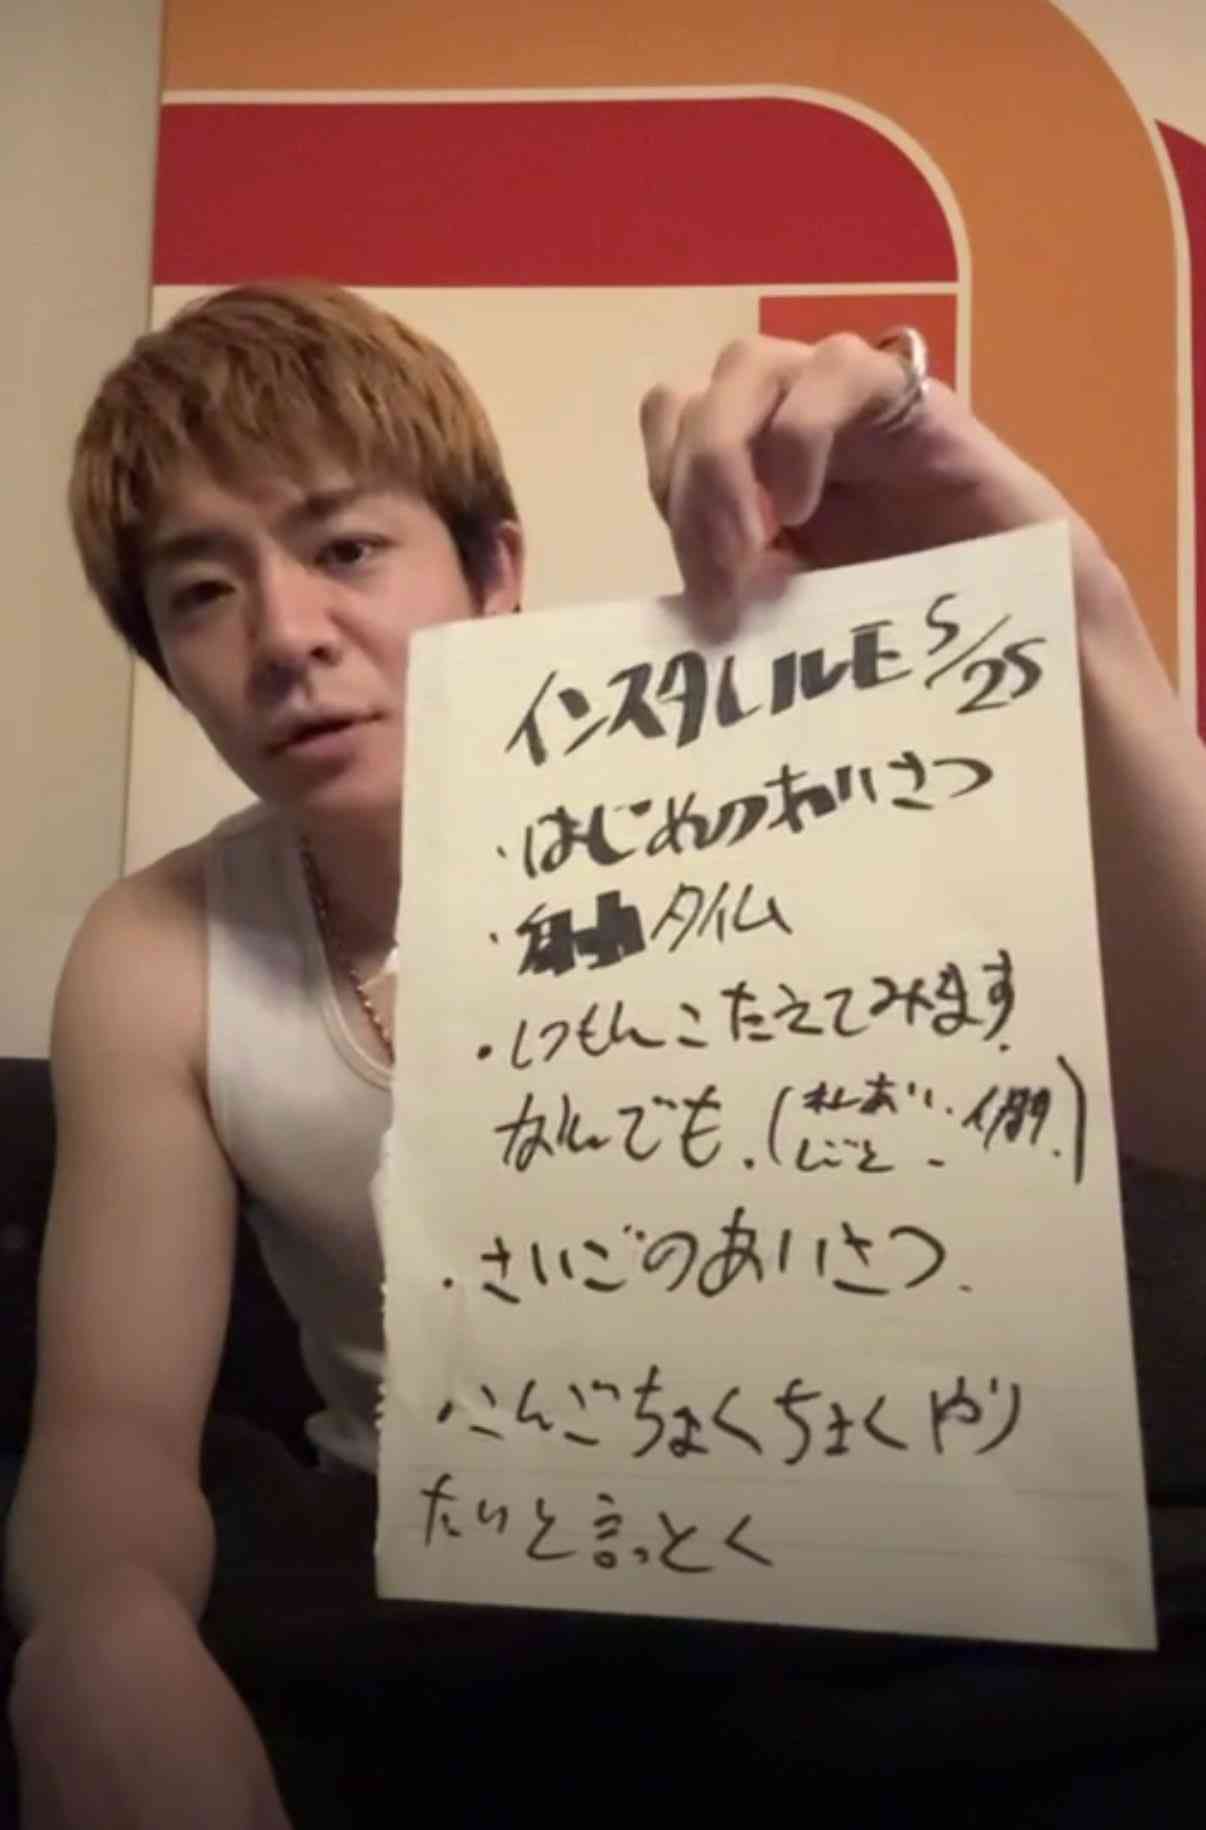 インスタLIVE 5/25
・はじめのあいさつ
タイム
・しつもんこたえてみます
なんでも.(れんあい.
しごと
・さいごのあいさつ.
・こんごちょくちょくやり
たいと言っとく